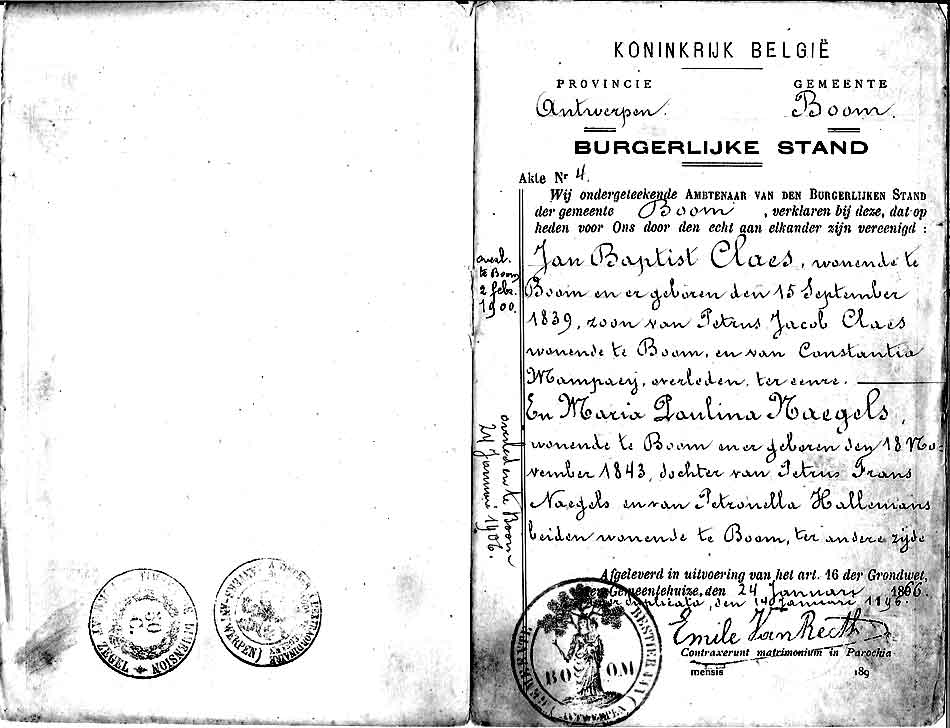 KONINKRIJK BELGIË
PROVINCIE GEMEENTE
Antwerpen. Boom.
BURGERLIJKE STAND
Akte Nr 4.
Wij ondergeteekende AMBTENAAR VAN DEN BURGERLIJKEN STAND
der gemeente Boom, verklaren bij deze, dat op
heden voor Ons door den echt aan elkander zijn vereenigd :
Jan Baptist Claes, wonende te
Boom en er geboren den 15 September
1839, zoon van Petrus Jacob Claes
wonende te Boom, en van Constantia
Mampaey, overleden, ter eenre.
En Maria Paulina Naegels,
wonende te Boom en er geboren den 18 No
vember 1843, dochter van Petrus Frans
Naegels en van Petronella Hallemans
beiden wonende te Boom, ter andere zijde
overl.
te Boom
2 febr.
1900.
overleden te Boom
24 januari 1906.
Afgeleverd in uitvoering van het art. 16 der Grondwet,
Gemeentehuize, den 24 Januari 1866.
duplicata, den 14 Januari
Emile Van Reeth
Contraxerunt matrimonium in Parochia
mensis 189
BOOM